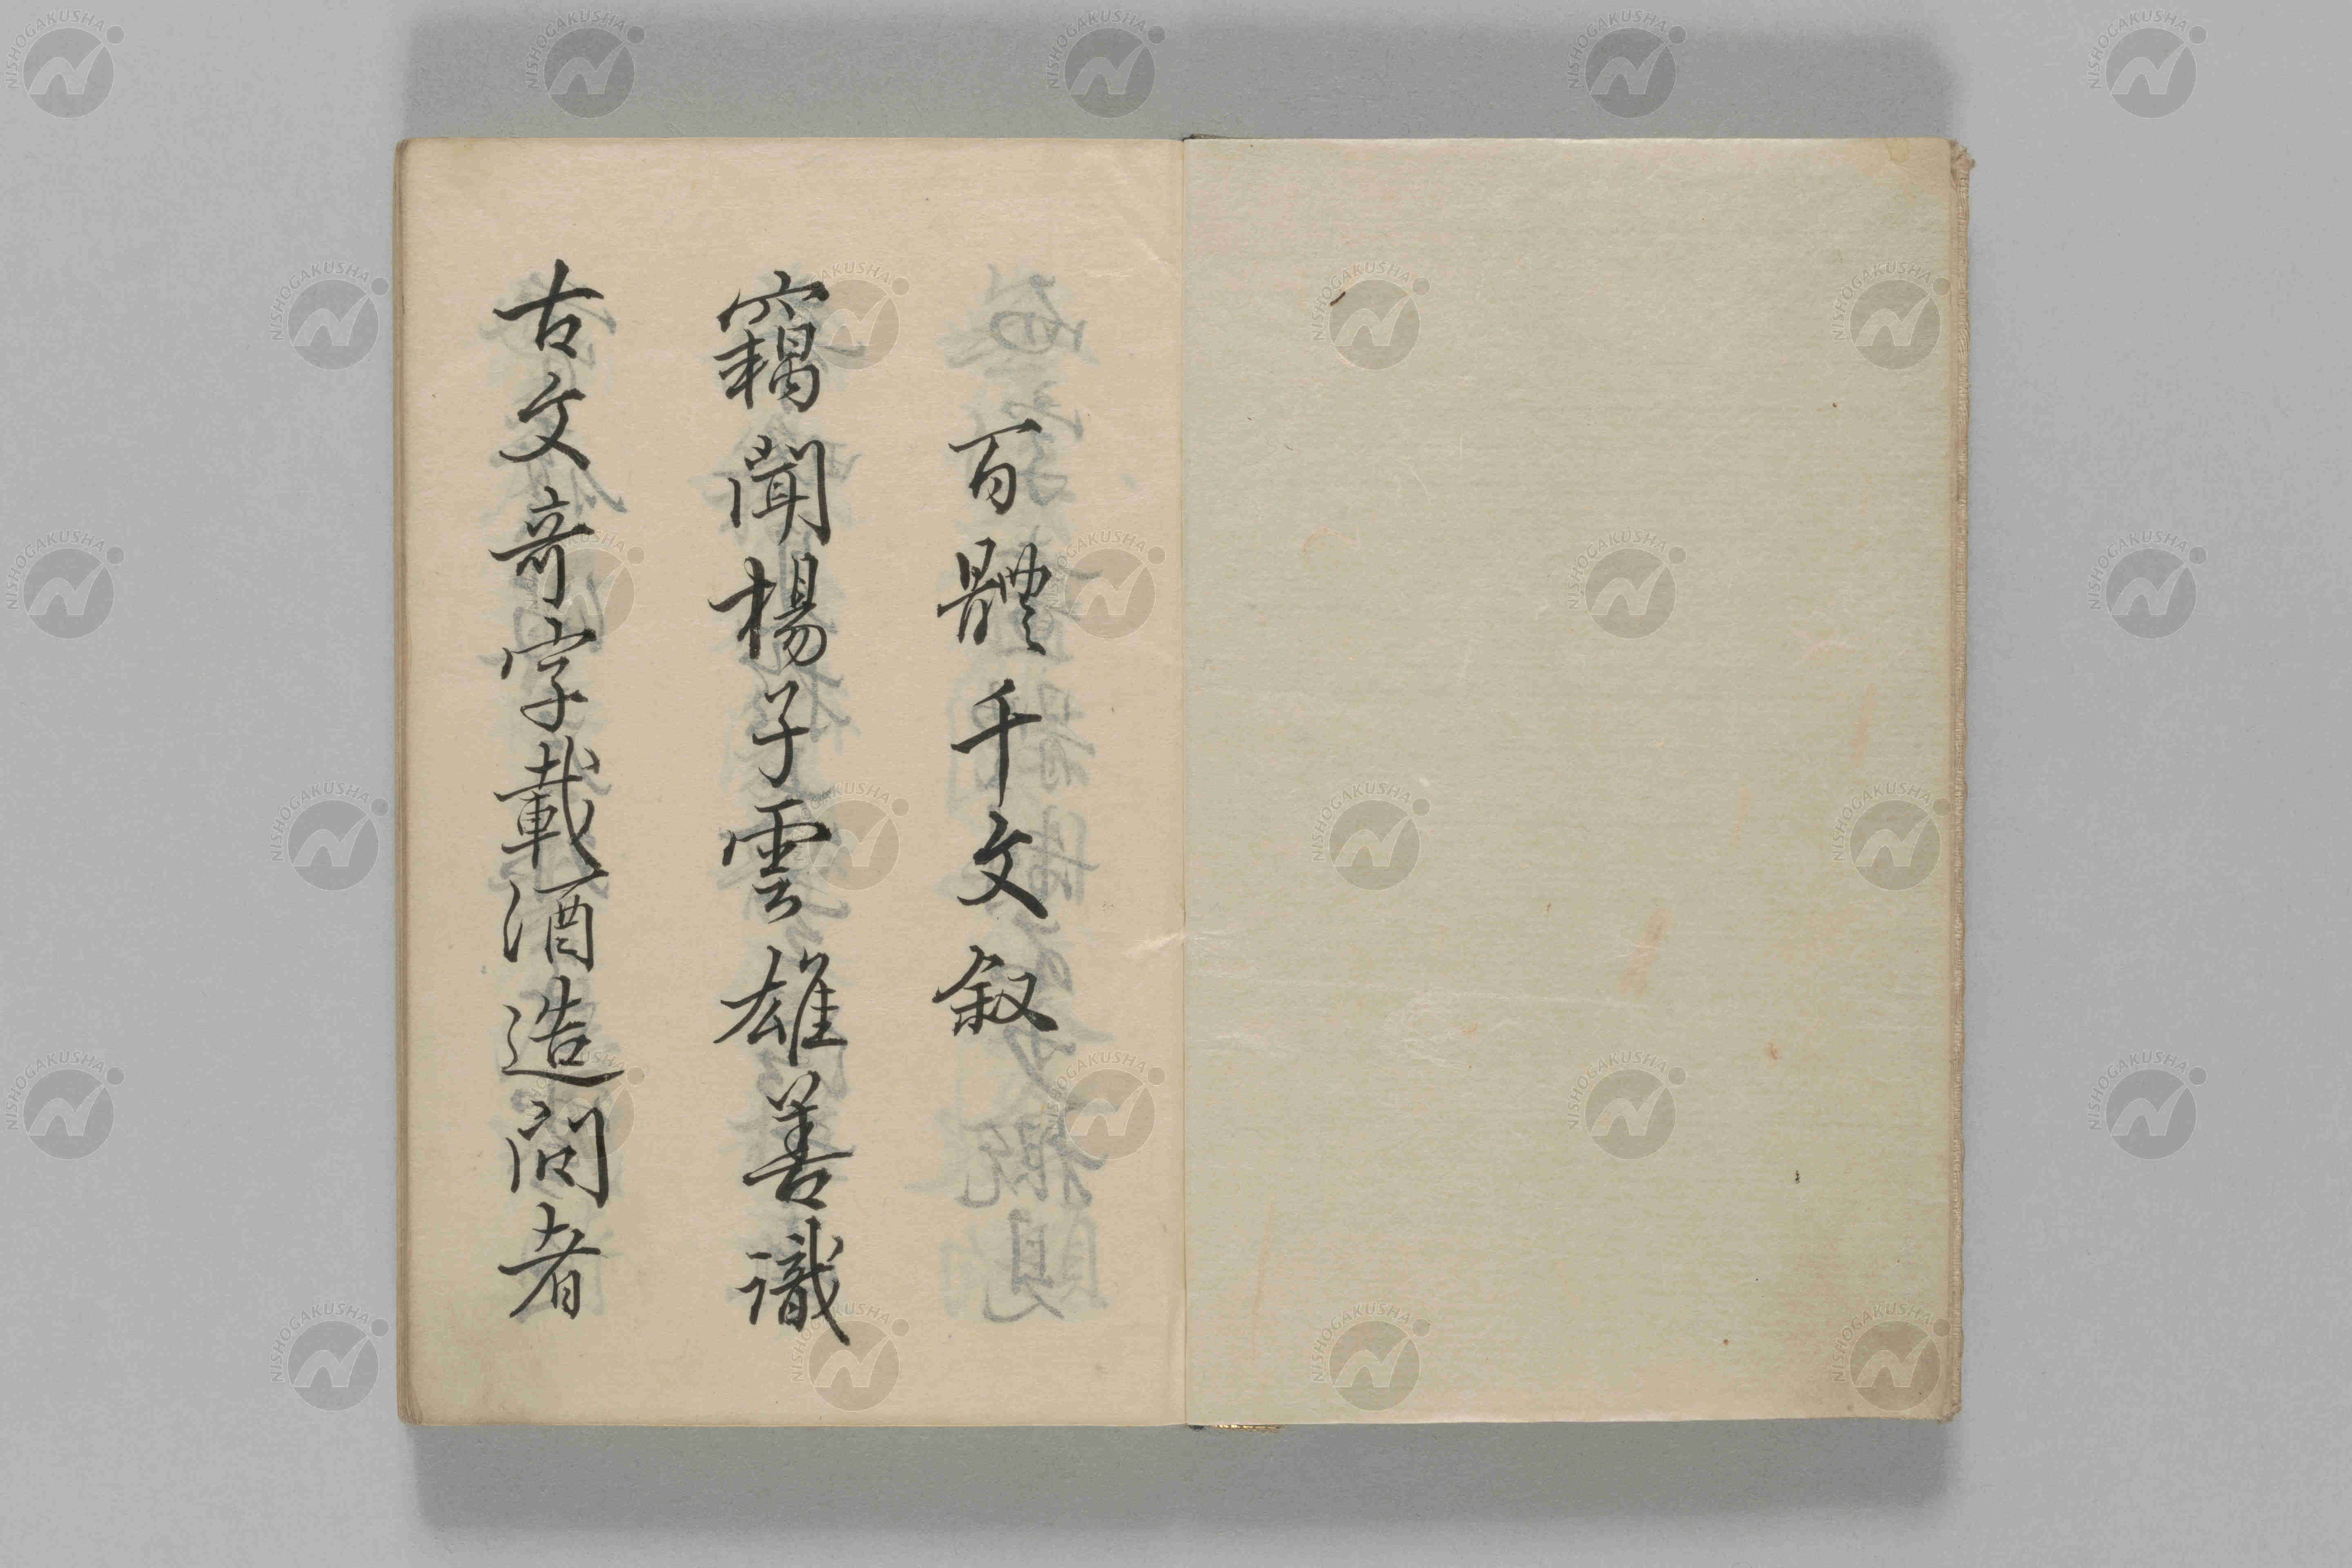 百體千文叙
竊聞楊子雲雄善識
古文奇字載酒造問者
NISHOGAKUSHA